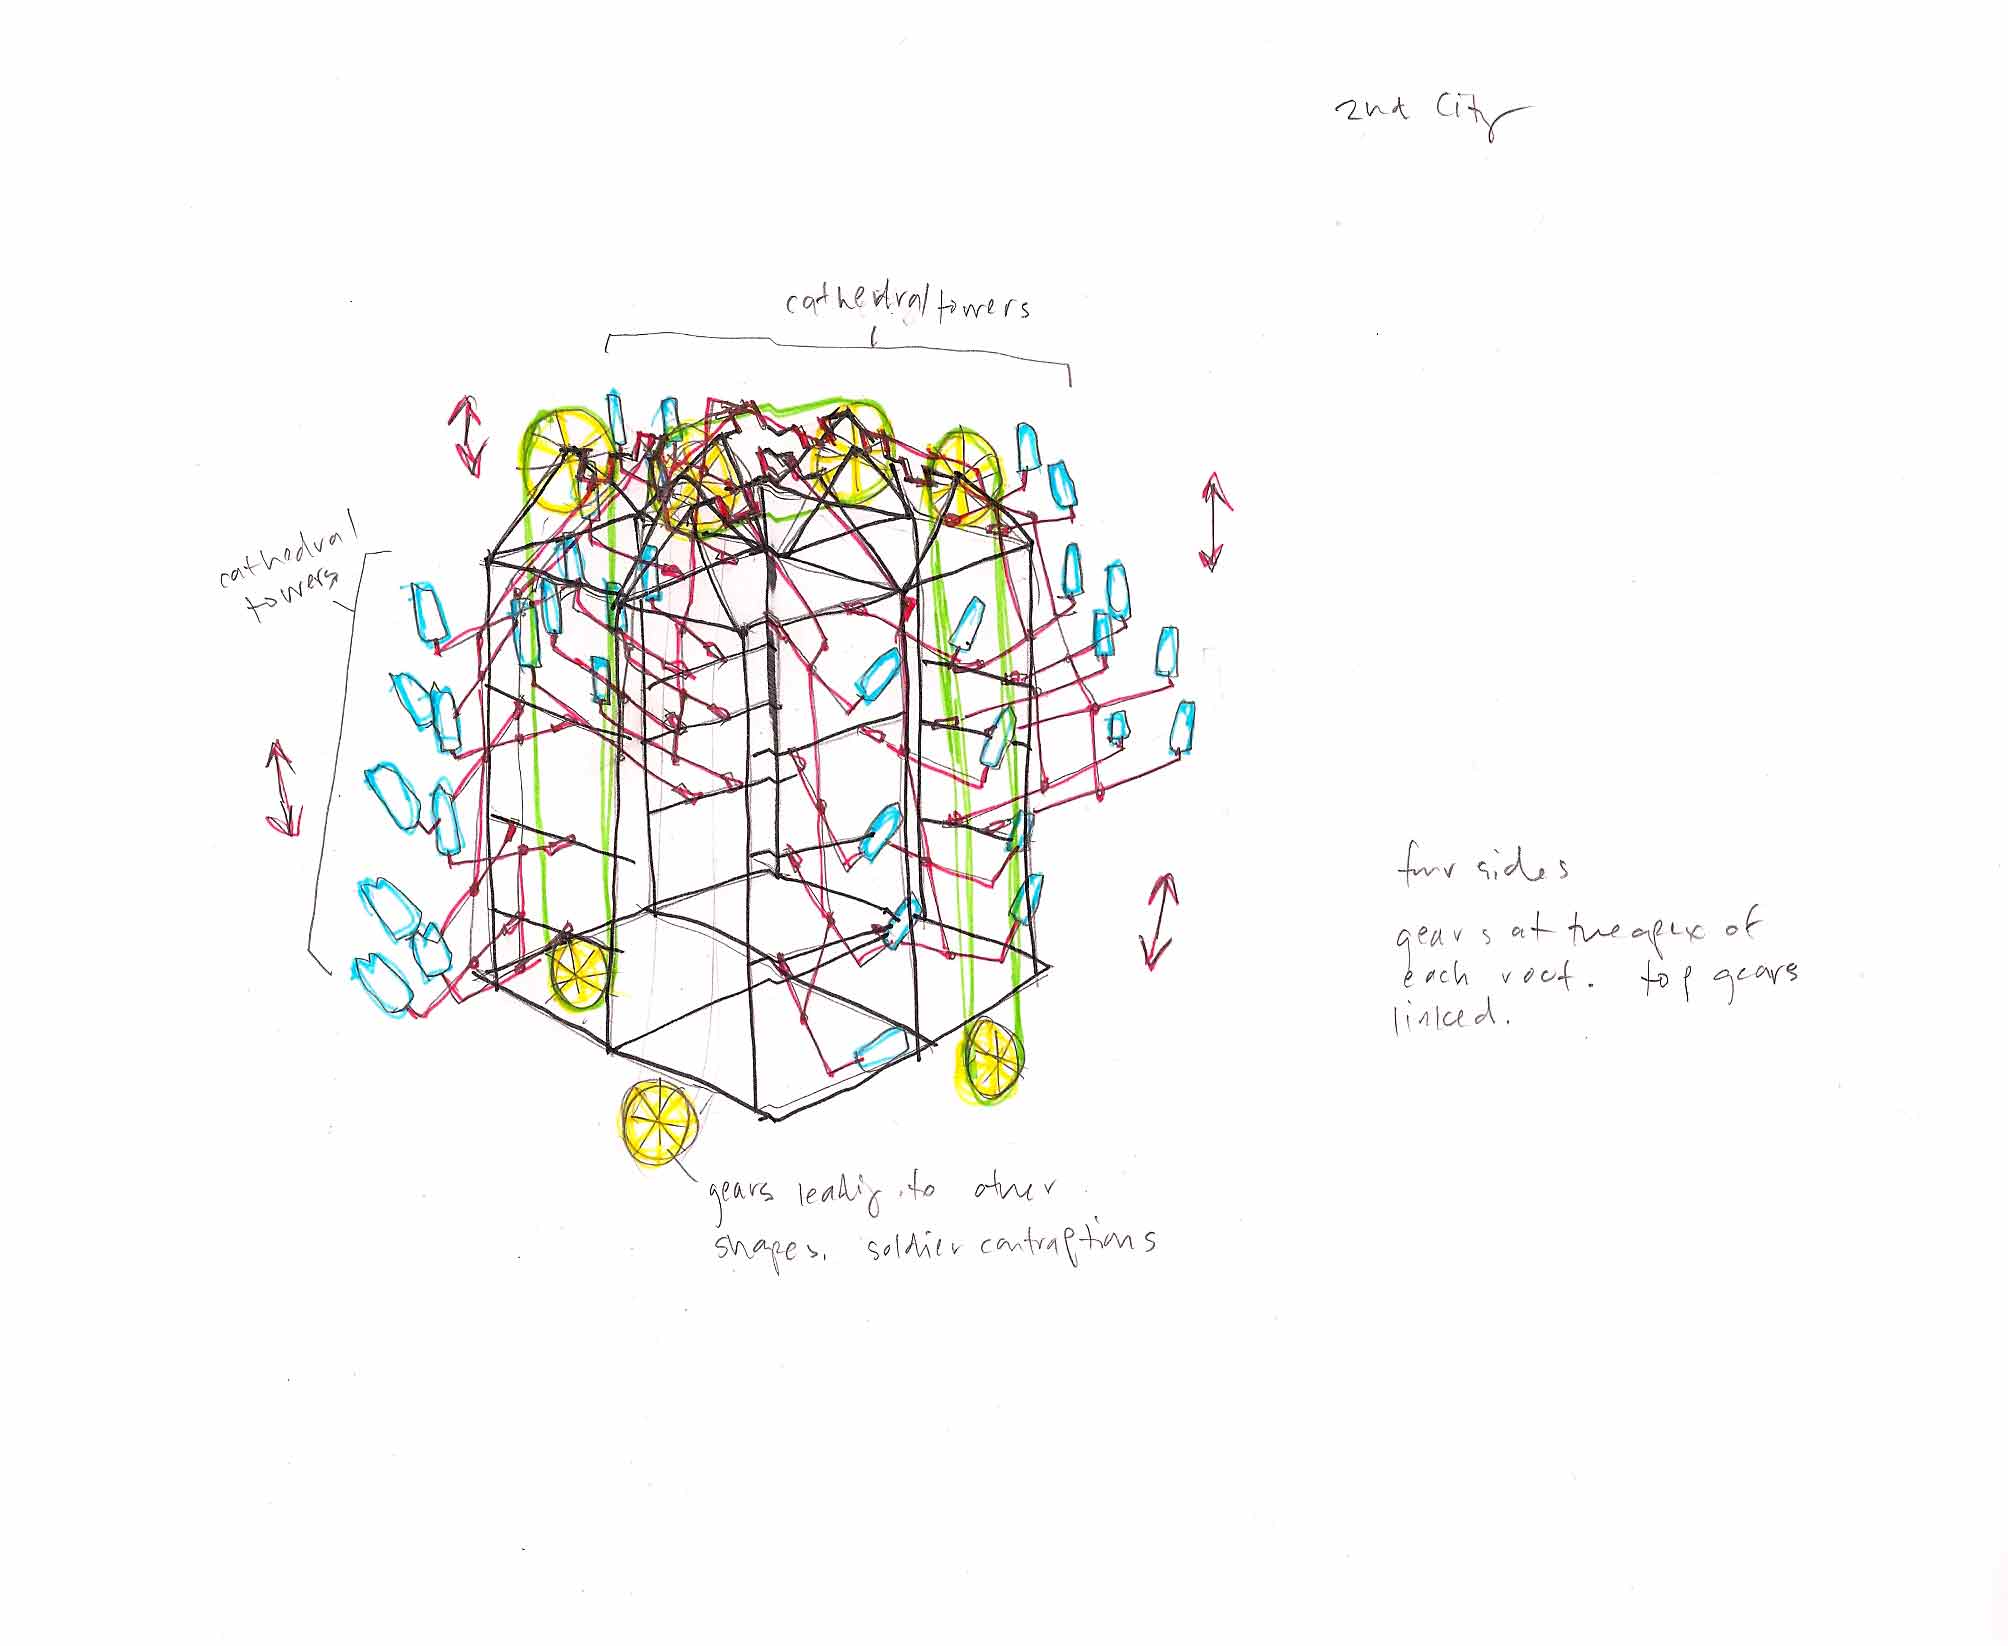 2nd City
cathedral towers
cathedral
towers
four sides
gears at the apex of
each roof. top gears
linked.
gears leading to other
shapes. soldier contraptions